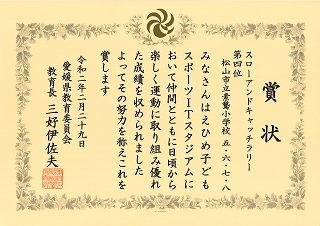 賞状
スローアンドキャッチラリー
第四位
松山市立素鵞小学校 五・六・七・八
みなさんはえひめ子ども
スポーツITスタジアムに
おいて仲間とともに日頃から
楽しく運動に取り組み優れ
た成績を収められました
よってその努力を称えこれを
賞します
令和二年二月二十九日
愛媛県教育委員会
教育長 三好伊佐夫